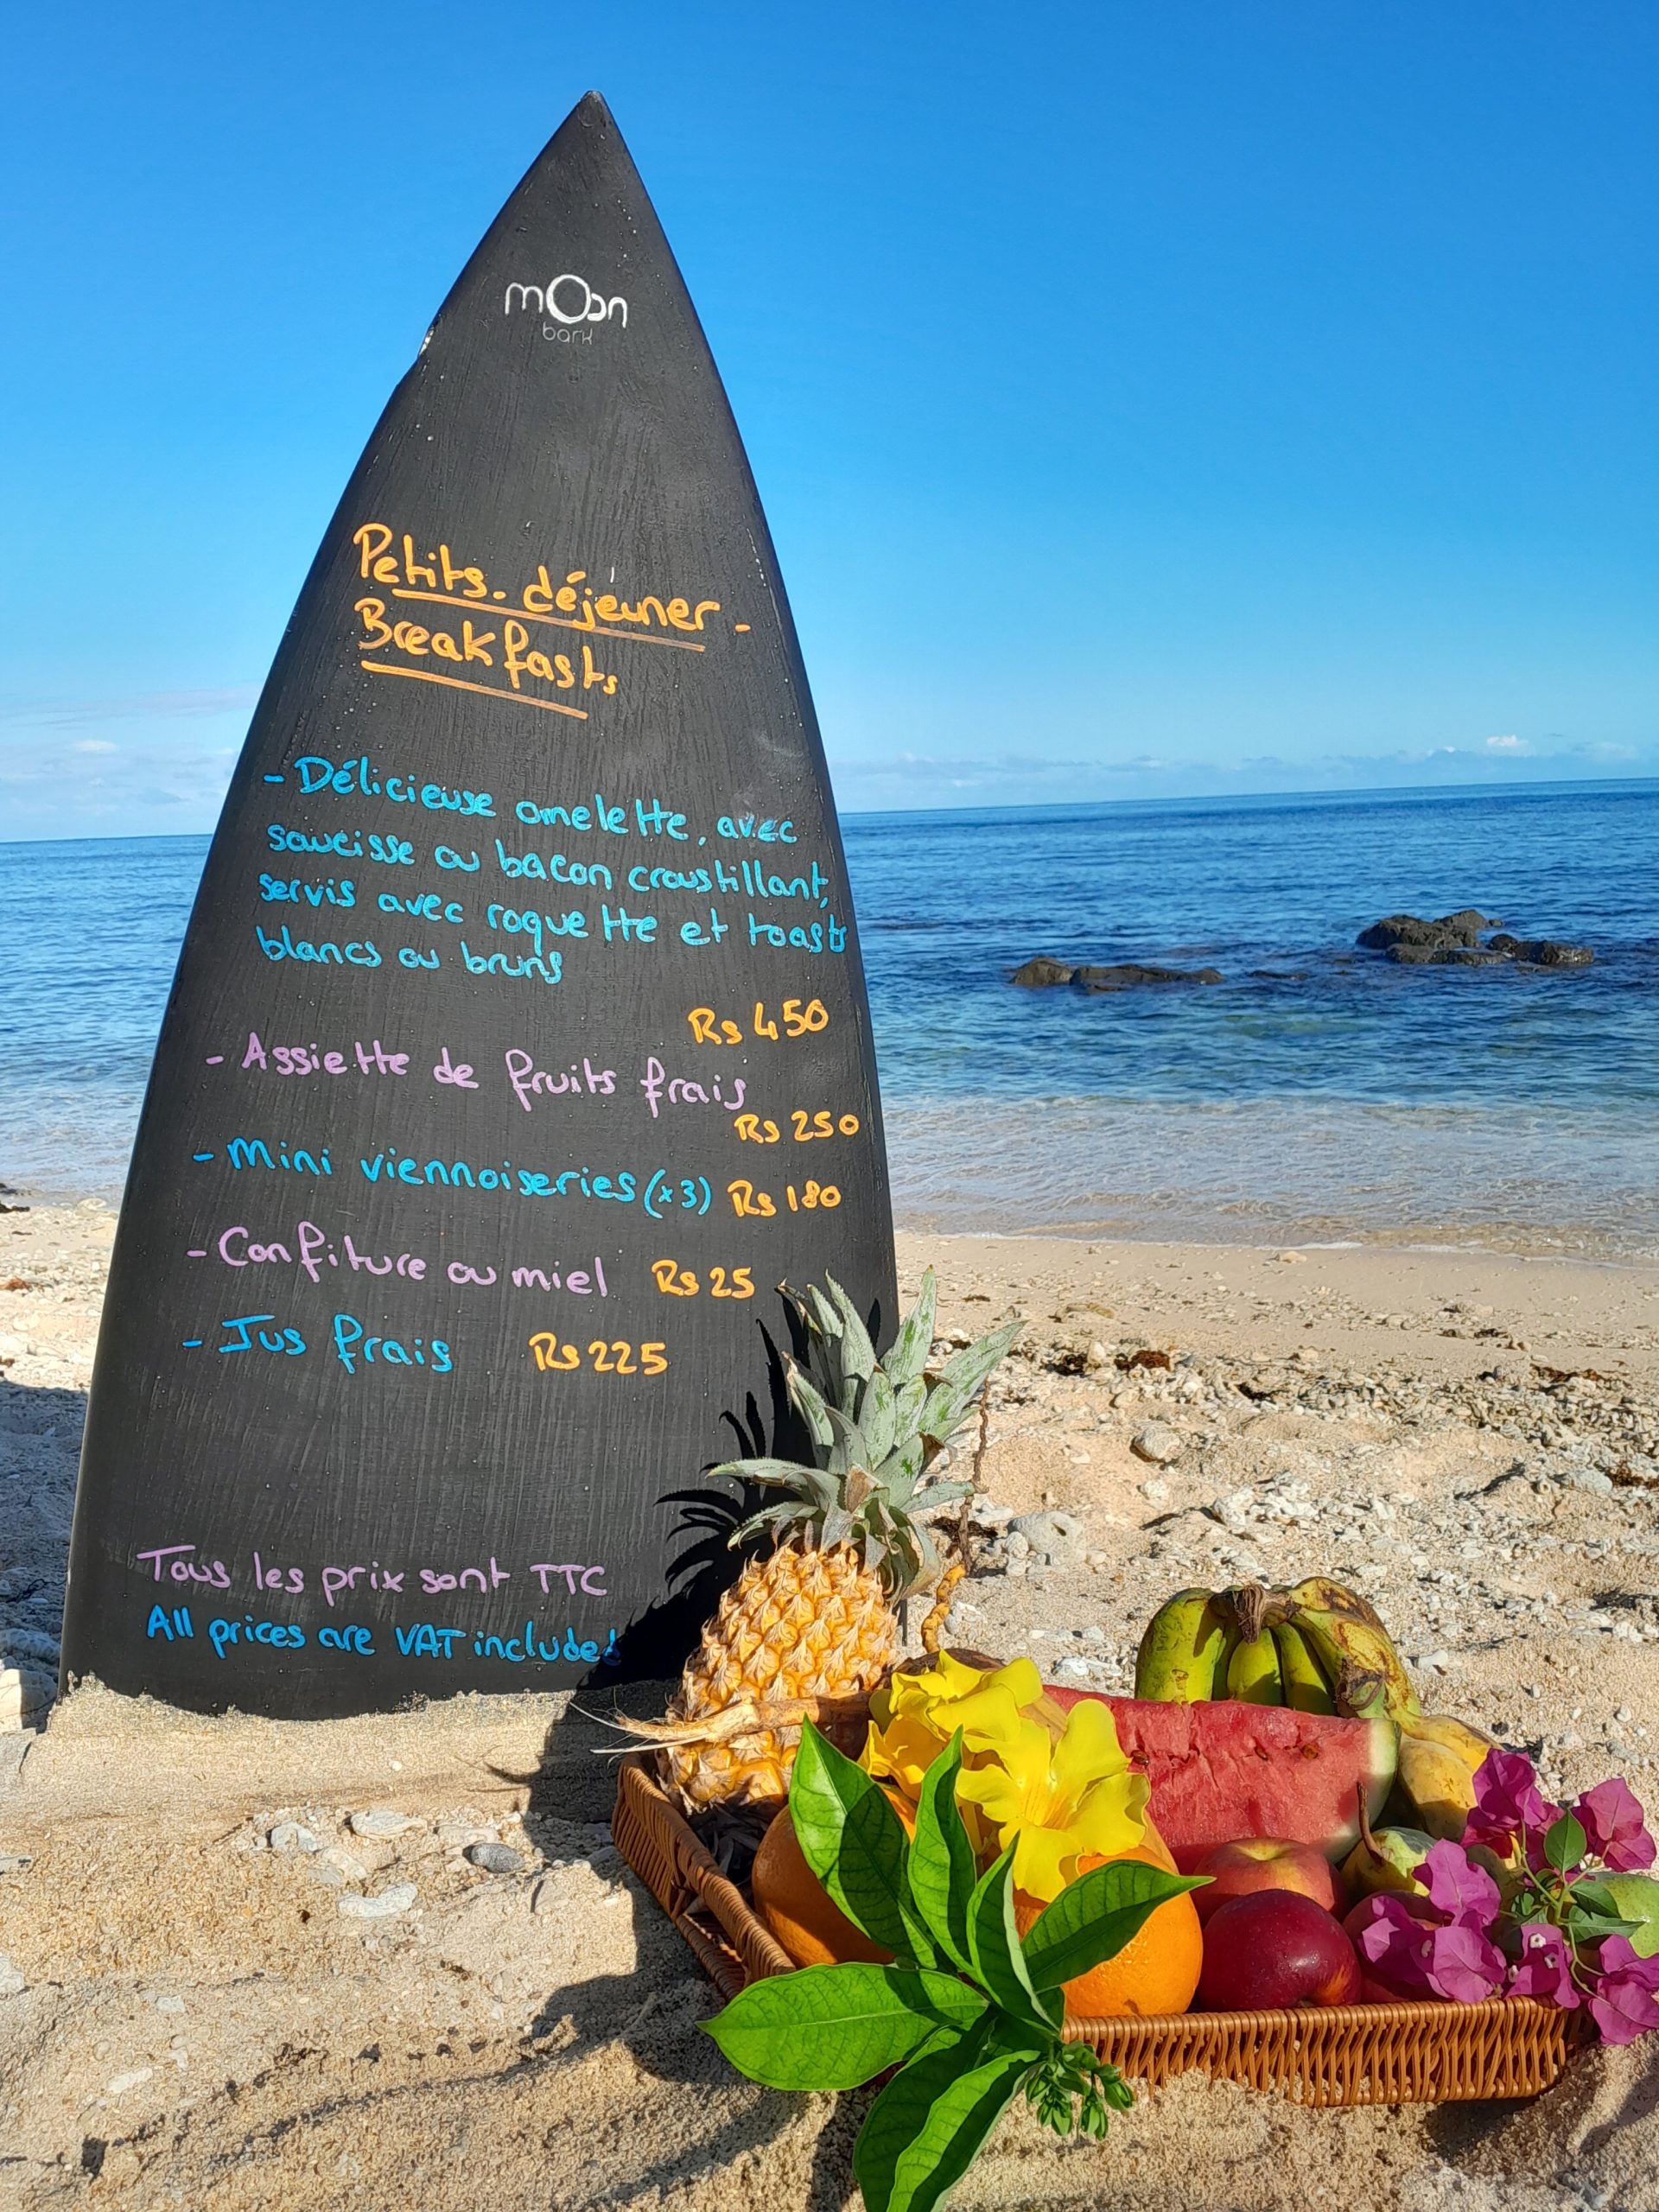 moon
bark
Petits-déjeuner -
Breakfasts
- Délicieuse omelette, avec
saucisse ou bacon croustillant,
servis avec roquette et toasts
blancs ou bruns
Rs 450
- Assiette de fruits frais
Rs 250
- Mini viennoiseries (x3) Rs 180
- Confiture ou miel Rs 25
- Jus frais Rs 225
Tous les prix sont TTC
All prices are VAT included